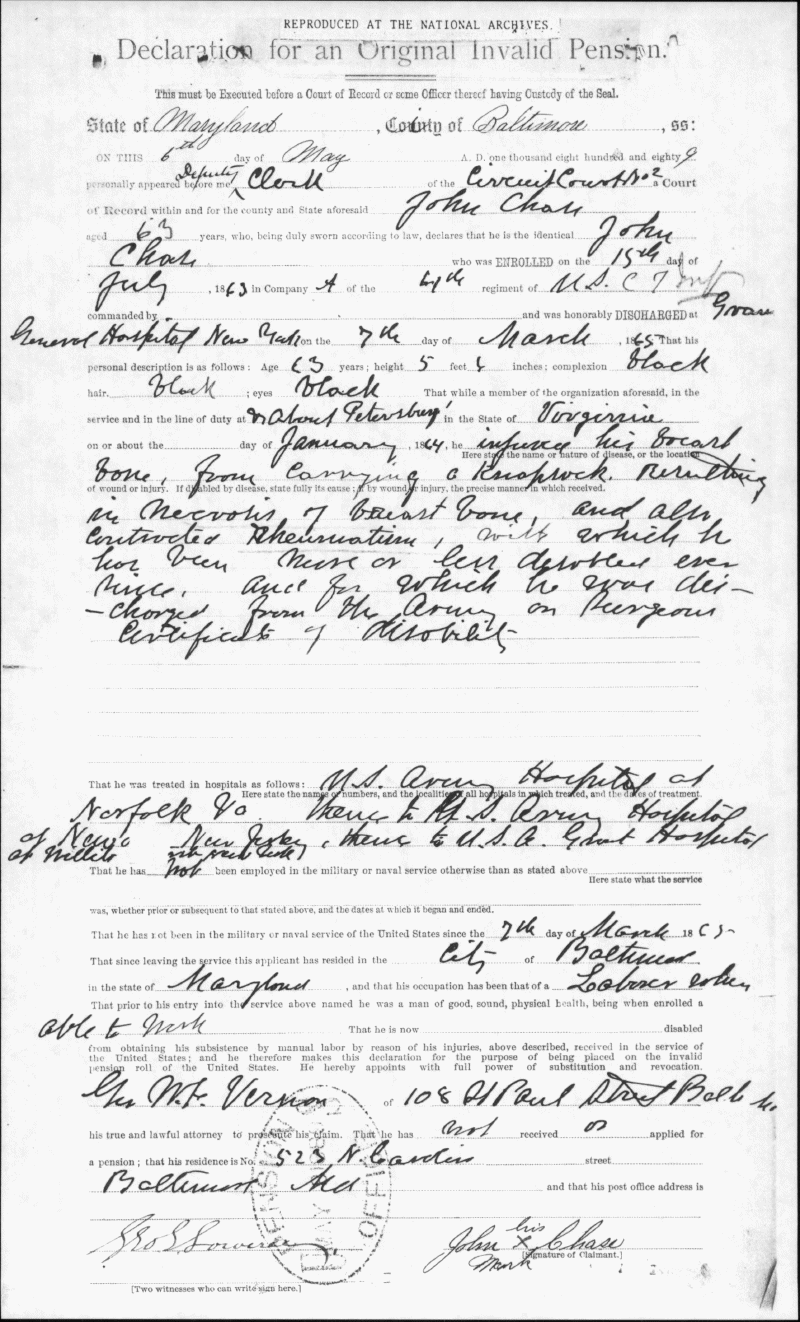 REPRODUCED AT THE NATIONAL ARCHIVES.
Declaration for an Original Invalid Pension.
This must be Executed before a Court of Record or some Officer thereof having Custody of the Seal.
State of Maryland, City of Baltimore, ss:
ON THIS 6th day of May A. D. one thousand eight hundred and eighty 9
personally appeared before me Deputy Clerk of the Circuit Court No 2 a Court
of Record within and for the county and State aforesaid John Chase
aged 63 years, who, being duly sworn according to law, declares that he is the identical John
Chase who was ENROLLED on the 15th day of
July, 1863 in Company A of the 4th regiment of U.S. C T Inf
commanded by and was honorably DISCHARGED at Grant
General Hospital New York on the 7th day of March, 1865 That his
personal description is as follows: Age 63 years; height 5 feet inches; complexion black
hair. black; eyes black That while a member of the organization aforesaid, in the
service and in the line of duty at or about Petersburg in the State of Virginia
on or about the day of January, 1864, he injured his breast
Here state the name or nature of disease, or the location
bone, from carrying a Knapsack. Resulting
of wound or injury. If disabled by disease, state fully its cause; if by wound or injury, the precise manner in which received.
in Necrosis of breast bone, and also
contracted Rheumatism, with which he
has been more or less disabled ever
since. and for which he was dis-
-charged from the Army on Surgeons
Certificate of disability
That he was treated in hospitals as follows: U.S. Army Hospital at
Here state the names or numbers, and the localities of all hospitals in which treated, and the dates of treatment.
Norfolk Va. thence to U.S. Army Hospital
at New Jersey, thence to U.S.A. Grant Hospital
at Willets New York
That he has not been employed in the military or naval service otherwise than as stated above
Here state what the service
was, whether prior or subsequent to that stated above, and the dates at which it began and ended.
That he has not been in the military or naval service of the United States since the 7th day of March 1865
That since leaving the service this applicant has resided in the City of Baltimore
in the state of Maryland, and that his occupation has been that of a Laborer when
That prior to his entry into the service above named he was a man of good, sound, physical health, being when enrolled a
able to work That he is now disabled
from obtaining his subsistence by manual labor by reason of his injuries, above described, received in the service of
the United States; and he therefore makes this declaration for the purpose of being placed on the invalid
pension roll of the United States. He hereby appoints with full power of substitution and revocation,
Geo W.F. Vernon of 108 St Paul Street Balto Md
his true and lawful attorney to prosecute his claim. That he has not received or applied for
a pension; that his residence is No. 523 N. street
Baltimore Md and that his post office address is
PENSION OFFICE
MAY
John his x mark Chase
[Signature of Claimant.]
[Two witnesses who can write sign here.]